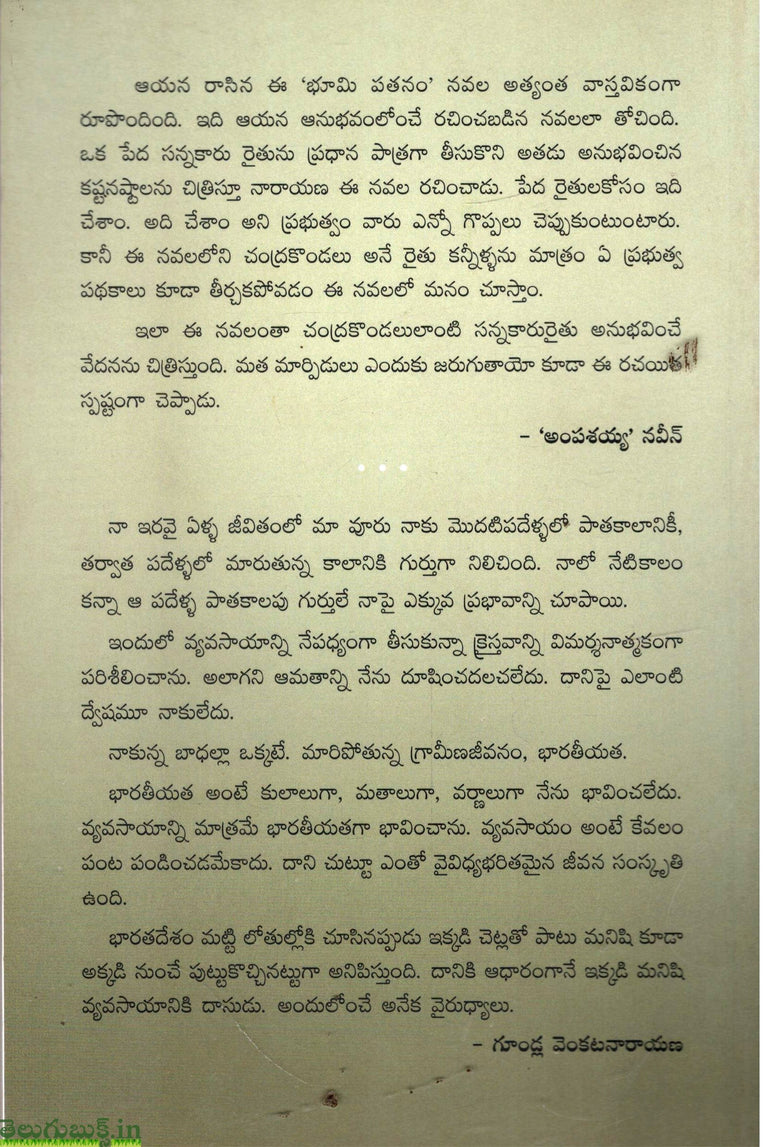 ఆయన రాసిన ఈ ‘భూమి పతనం’ నవల అత్యంత వాస్తవికంగా
రూపొందింది. ఇది ఆయన ఆనుభవంలోంచే రచించబడిన నవలలా తోచింది.
ఒక పేద సన్నకారు రైతును ప్రధాన పాత్రగా తీసుకొని అతడు అనుభవించిన
కష్టనష్టాలను చిత్రిస్తూ నారాయణ ఈ నవల రచించాడు. పేద రైతులకోసం ఇది
చేశాం. అది చేశాం అని ప్రభుత్వం వారు ఎన్నో గొప్పలు చెప్పుకుంటుంటారు.
కానీ ఈ నవలలోని చంద్రకొండలు అనే రైతు కన్నీళ్ళను మాత్రం ఏ ప్రభుత్వ
పథకాలు కూడా తీర్చకపోవడం ఈ నవలలో మనం చూస్తాం.
ఇలా ఈ నవలంతా చంద్రకొండలులాంటి సన్నకారురైతు అనుభవించే
వేదనను చిత్రిస్తుంది. మత మార్పిడులు ఎందుకు జరుగుతాయో కూడా ఈ రచయిత
స్పష్టంగా చెప్పాడు.
– ‘అంపశయ్య’ నవీన్
నా ఇరవై ఏళ్ళ జీవితంలో మా వూరు నాకు మొదటిపదేళ్ళలో పాతకాలానికీ,
తర్వాత పదేళ్ళలో మారుతున్న కాలానికి గుర్తుగా నిలిచింది. నాలో నేటికాలం
కన్నా ఆ పదేళ్ళ పాతకాలపు గుర్తులే నాపై ఎక్కువ ప్రభావాన్ని చూపాయి.
ఇందులో వ్యవసాయాన్ని నేపధ్యంగా తీసుకున్నా క్రైస్తవాన్ని విమర్శనాత్మకంగా
పరిశీలించాను. అలాగని ఆమతాన్ని నేను దూషించదలచలేదు. దానిపై ఎలాంటి
ద్వేషమూ నాకులేదు.
నాకున్న బాధల్లా ఒక్కటే. మారిపోతున్న గ్రామీణజీవనం, భారతీయత.
భారతీయత అంటే కులాలుగా, మతాలుగా, వర్ణాలుగా నేను భావించలేదు.
వ్యవసాయాన్ని మాత్రమే భారతీయతగా భావించాను. వ్యవసాయం అంటే కేవలం
పంట పండించడమేకాదు. దాని చుట్టూ ఎంతో వైవిధ్యభరితమైన జీవన సంస్కృతి
ఉంది.
భారతదేశం మట్టి లోతుల్లోకి చూసినప్పుడు ఇక్కడి చెట్లతో పాటు మనిషి కూడా
అక్కడి నుంచే పుట్టుకొచ్చినట్టుగా అనిపిస్తుంది. దానికి ఆధారంగానే ఇక్కడి మనిషి
వ్యవసాయానికి దాసుడు. అందులోంచే అనేక వైరుధ్యాలు.
– గూండ్ల వెంకటనారాయణ
తెలుగుబుక్స్.in